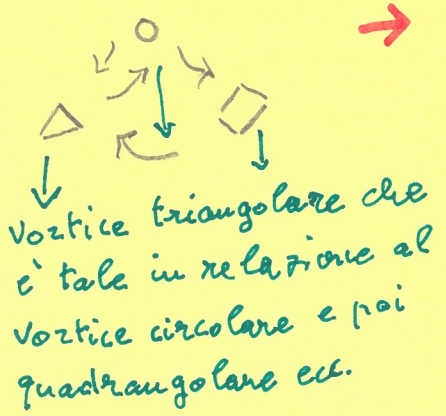 vortice triangolare che
è tale in relazione al
vortice circolare e poi
quadrangolare ecc.